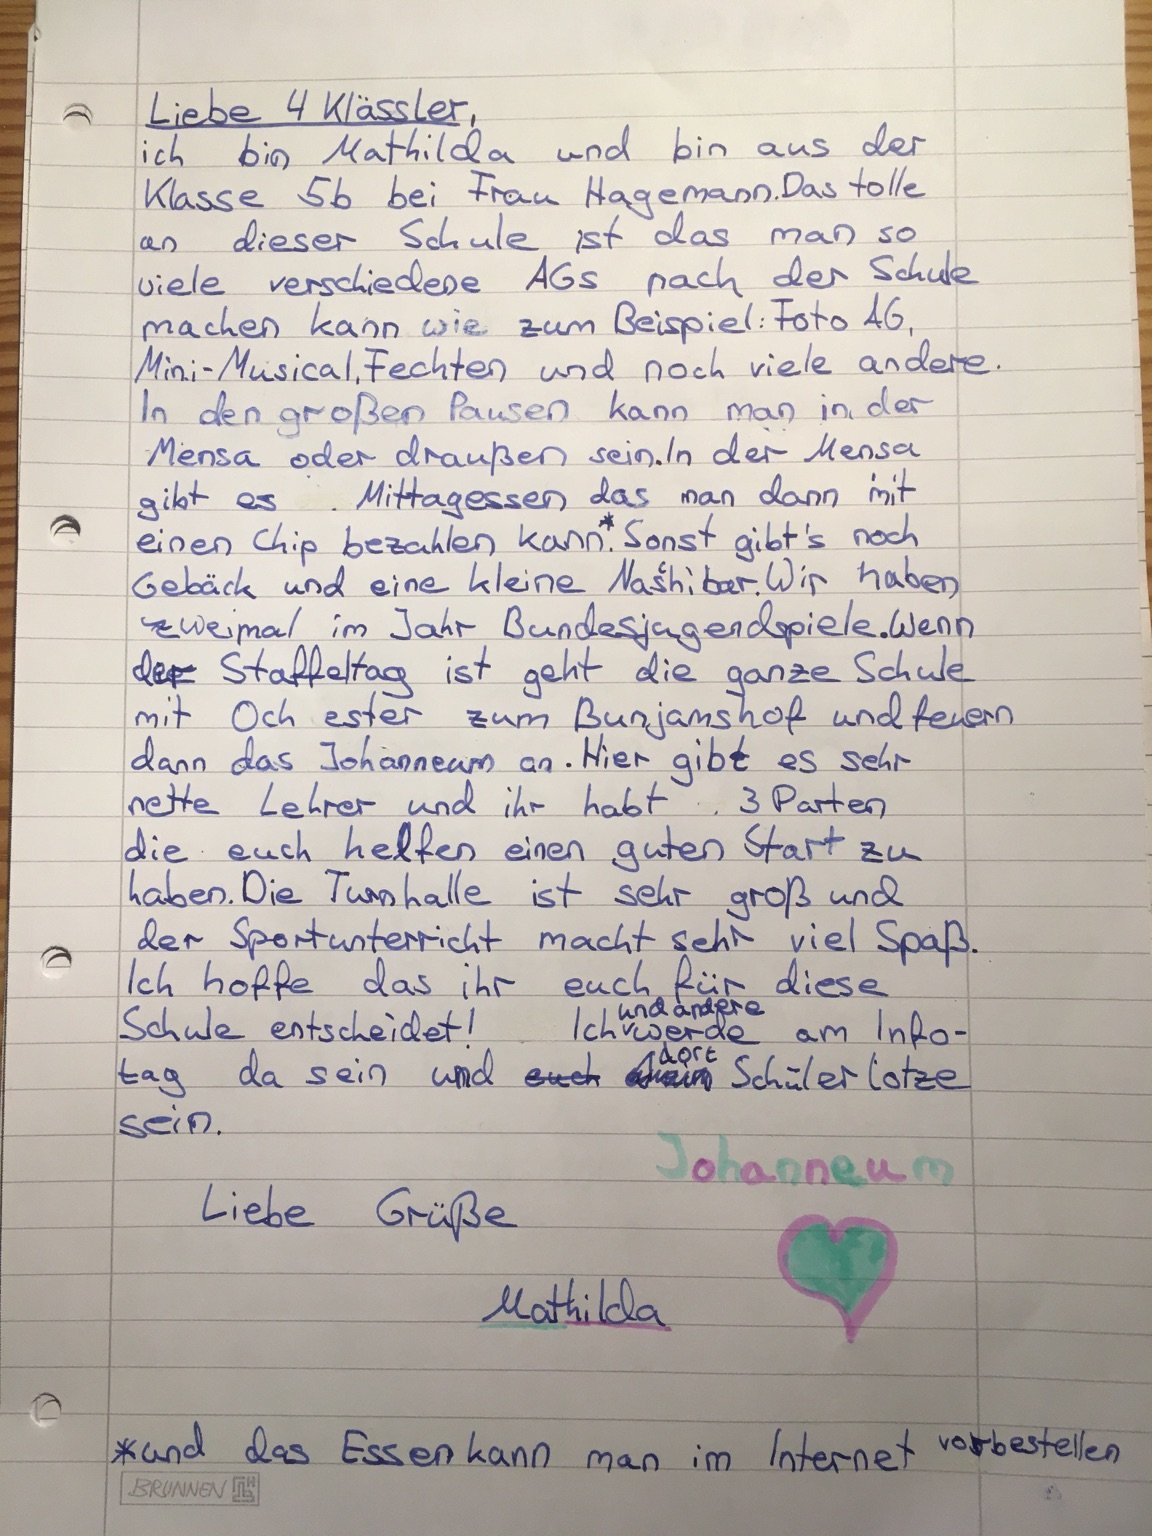 Liebe 4 Klässler,
ich bin Mathilda und bin aus der
Klasse 5b bei Frau Hagemann. Das tolle
an dieser Schule ist das man so
viele verschiedene AGs nach der Schule
machen kann wie zum Beispiel: Foto AG,
Mini-Musical, Fechten und noch viele andere.
In den großen Pausen kann man in der
Mensa oder draußen sein. In der Mensa
gibt es Mittagessen das man dann mit
einen Chip bezahlen kann.* Sonst gibt's noch
Gebäck und eine kleine Naschibar. Wir haben
zweimal im Jahr Bundesjugendspiele. Wenn
der Staffeltag ist geht die ganze Schule
mit Och ester zum Bunjamshof und feuern
dann das Johanneum an. Hier gibt es sehr
nette Lehrer und ihr habt 3 Parten
die euch helfen einen guten Start zu
haben. Die Turnhalle ist sehr groß und
der Sportunterricht macht sehr viel Spaß.
Ich hoffe das ihr euch für diese
Schule entscheidet! Ich und andere werde am Info-
tag da sein und euch dort Schülerlotze
sein.
Johanneum
Liebe Grüße
Mathilda
*und das Essen kann man im Internet vorbestellen
BRUNNEN